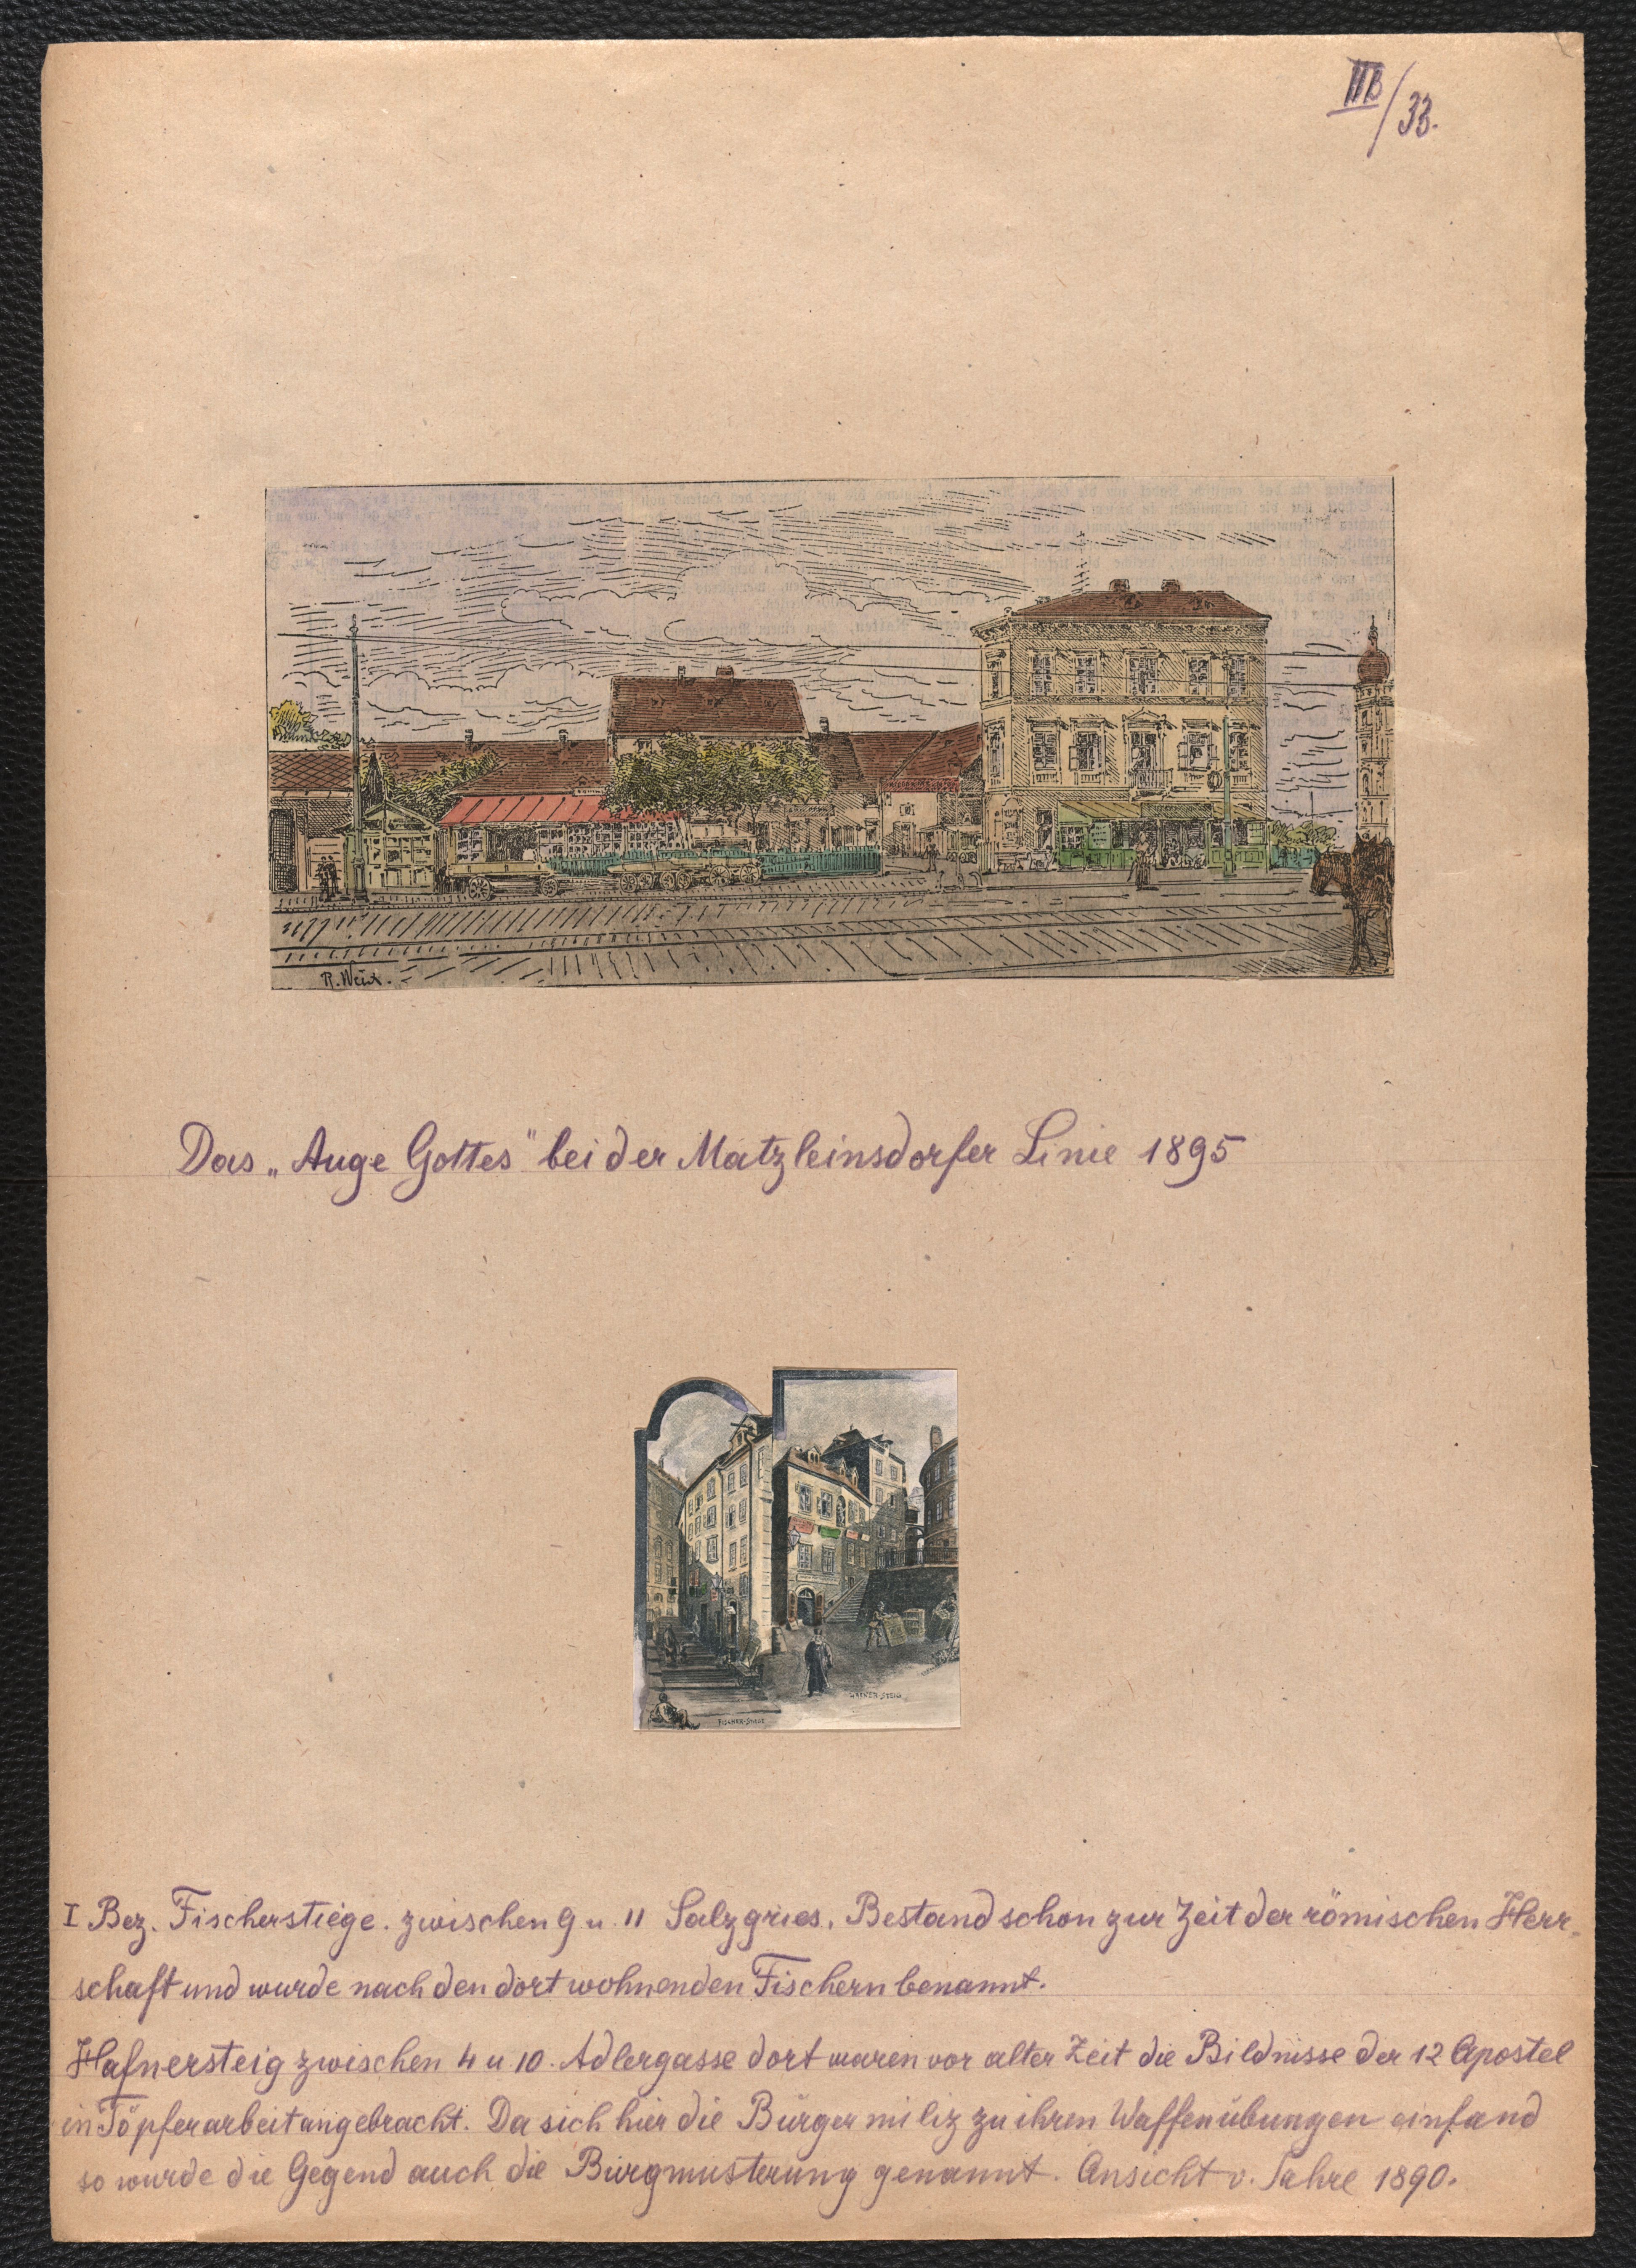 IIB/33.
R. Weix.
Das „Auge Gottes" bei der Matzleinsdorfer Linie 1895
FISCHER-STIEGE
HAFNER-STEIG
I Bez. Fischerstiege. zwischen 9 u. 11 Salzgries. Bestand schon zur Zeit der römischen Herr-
schaft und wurde nach den dort wohnenden Fischern benannt.
Hafnersteig zwischen 4 u 10. Adlergasse dort waren vor alter Zeit die Bildnisse der 12 Apostel
in Töpferarbeit angebracht. Da sich hier die Bürgermiliz zu ihren Waffenübungen einfand
so wurde die Gegend auch die Burgmusterung genannt. Ansicht v. Jahre 1890.